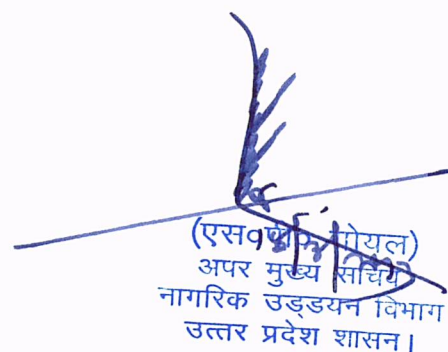 (एस०पी० गोयल)
अपर मुख्य सचिव
नागरिक उड्डयन विभाग
उत्तर प्रदेश शासन।